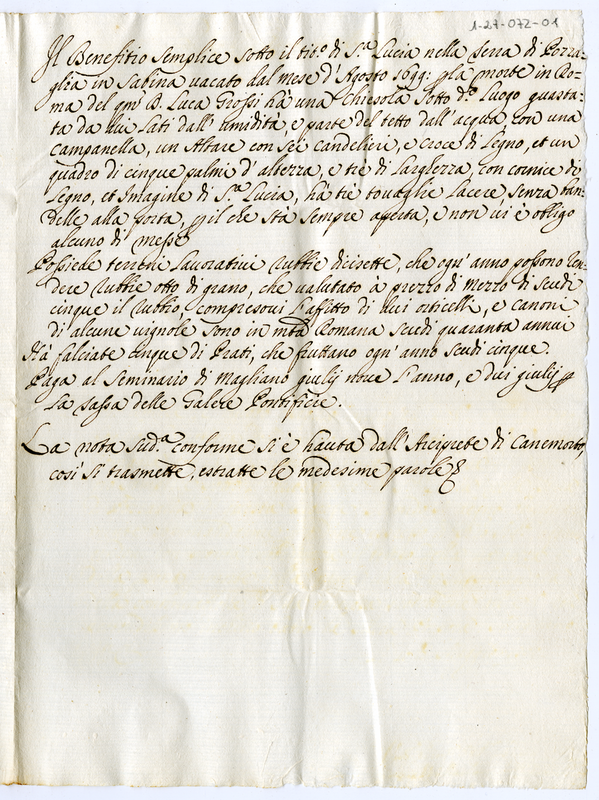 1-27-072-01
Il Benefitio semplice sotto il tit.º di S.ta Lucia nella serra di Pozza-
glia in Sabina vacato dal mese d'Agosto 1699: p la morte in Ro-
ma del qm B. Luca Grossi hà una Chiesola sotto d.º Luogo guasta-
ta da lui lati dall'umidità, e parte del tetto dall'acqua, con una
campanella, un Altare con sei candelieri, e croce di Legno, et un
quadro di cinque palmi d'altezza, e tre di larghezza, con cornice di
Legno, et Imagine di S.ta Lucia, hà tre tovaglie lacere, senza
delle alla porta, p il che stà sempre aperta, e non vi è obligo
alcuno di messe
Possiede terreni lavorativi rubbie dicisette, che ogn'anno possono ren-
dere rubbie otto di grano, che valutato à prezzo di mezzo di scudi
cinque il rubbio, compresovi l'affitto di dui orticelli, e canoni
di alcune vignole sono in mta Romana scudi quaranta annui
Hà falciate cinque di Prati, che fruttano ogn'anno scudi cinque.
Paga al Seminario di Magliano giulij nove l'anno, e dieci giulij p
la tassa delle Galere Pontificie.
La nota sud.ta conforme si è hauta dall'Arciprete di Canemorto,
così si trasmette, estratte le medesime parole